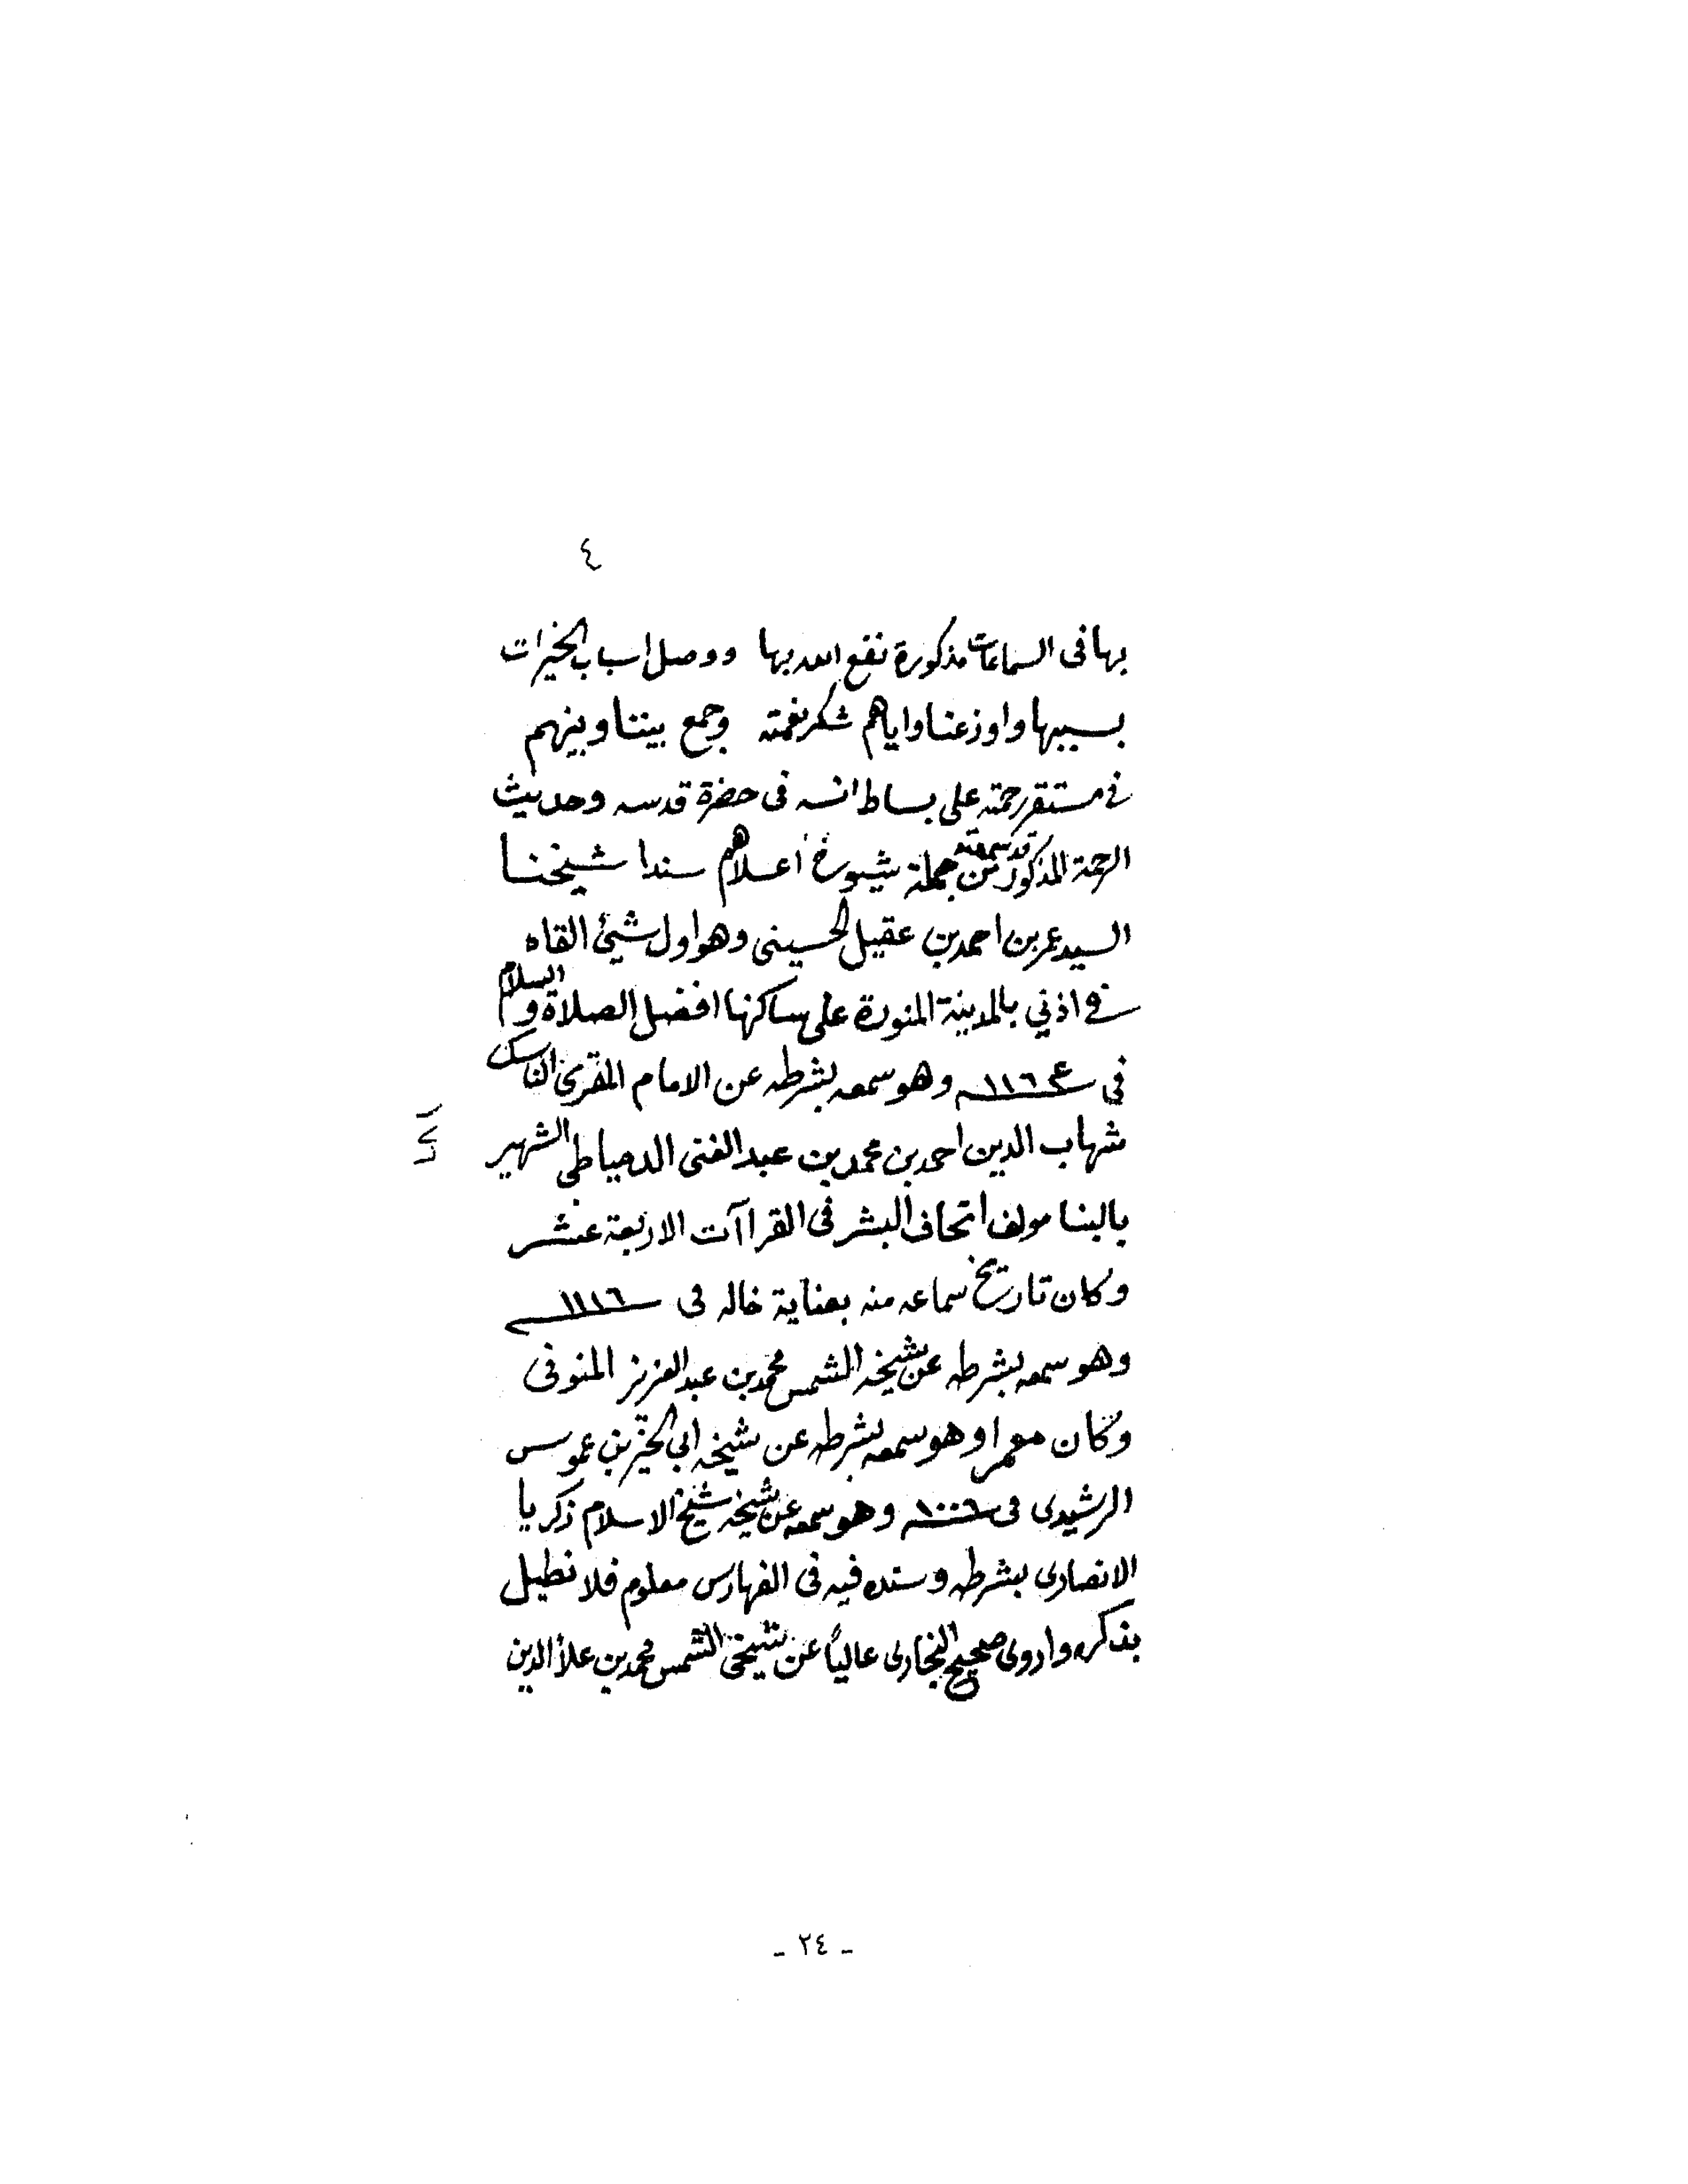 ٤
بها فى السماعات مذكورة نفع الله بها ووصل اسباب الخيرات
بسببها واوزعنا واياهم شكر نعمته وجمع بيننا وبينهم
فى مستقر رحمته على بساط انسه فى حضرة قدسه وحديث
الرحمة المذكور قد سمعته من جملة شيوخ اعلاهم سندا شيخنا
السيد عمر بن احمد بن عقيل الحسينى وهو اول شيئ القاه
فى اذني بالمدينة المنورة على ساكنها افضل الصلاة والسلام
فى وهو سمعه بشرطه عن الامام المقرئ الناسك
شهاب الدين احمد بن محمد بن عبد الغنى الدمياطى الشهير
بالبنا مولف اتحاف البشر فى القراآت الاربعة عشر
وكان تاريخ سماعه منه بعناية خاله فى ١١١٦
وهو سمعه بشرطه عن شيخه الشمس محمد بن عبد العزيز المنوفى
وكان معمرا وهو سمعه بشرطه عن شيخه ابي الخير بن عموس
الرشيدى فى ١٠٠٦ وهو سمعه عن شيخه شيخ الاسلام زكريا
الانصارى بشرطه وسنده فيه فى الفهارس معلوم فلا نطيل
بذكره واروى صحيح البخارى عالياً عن شيخى الشمس محمد بن علأ الدين
- ٢٤ -